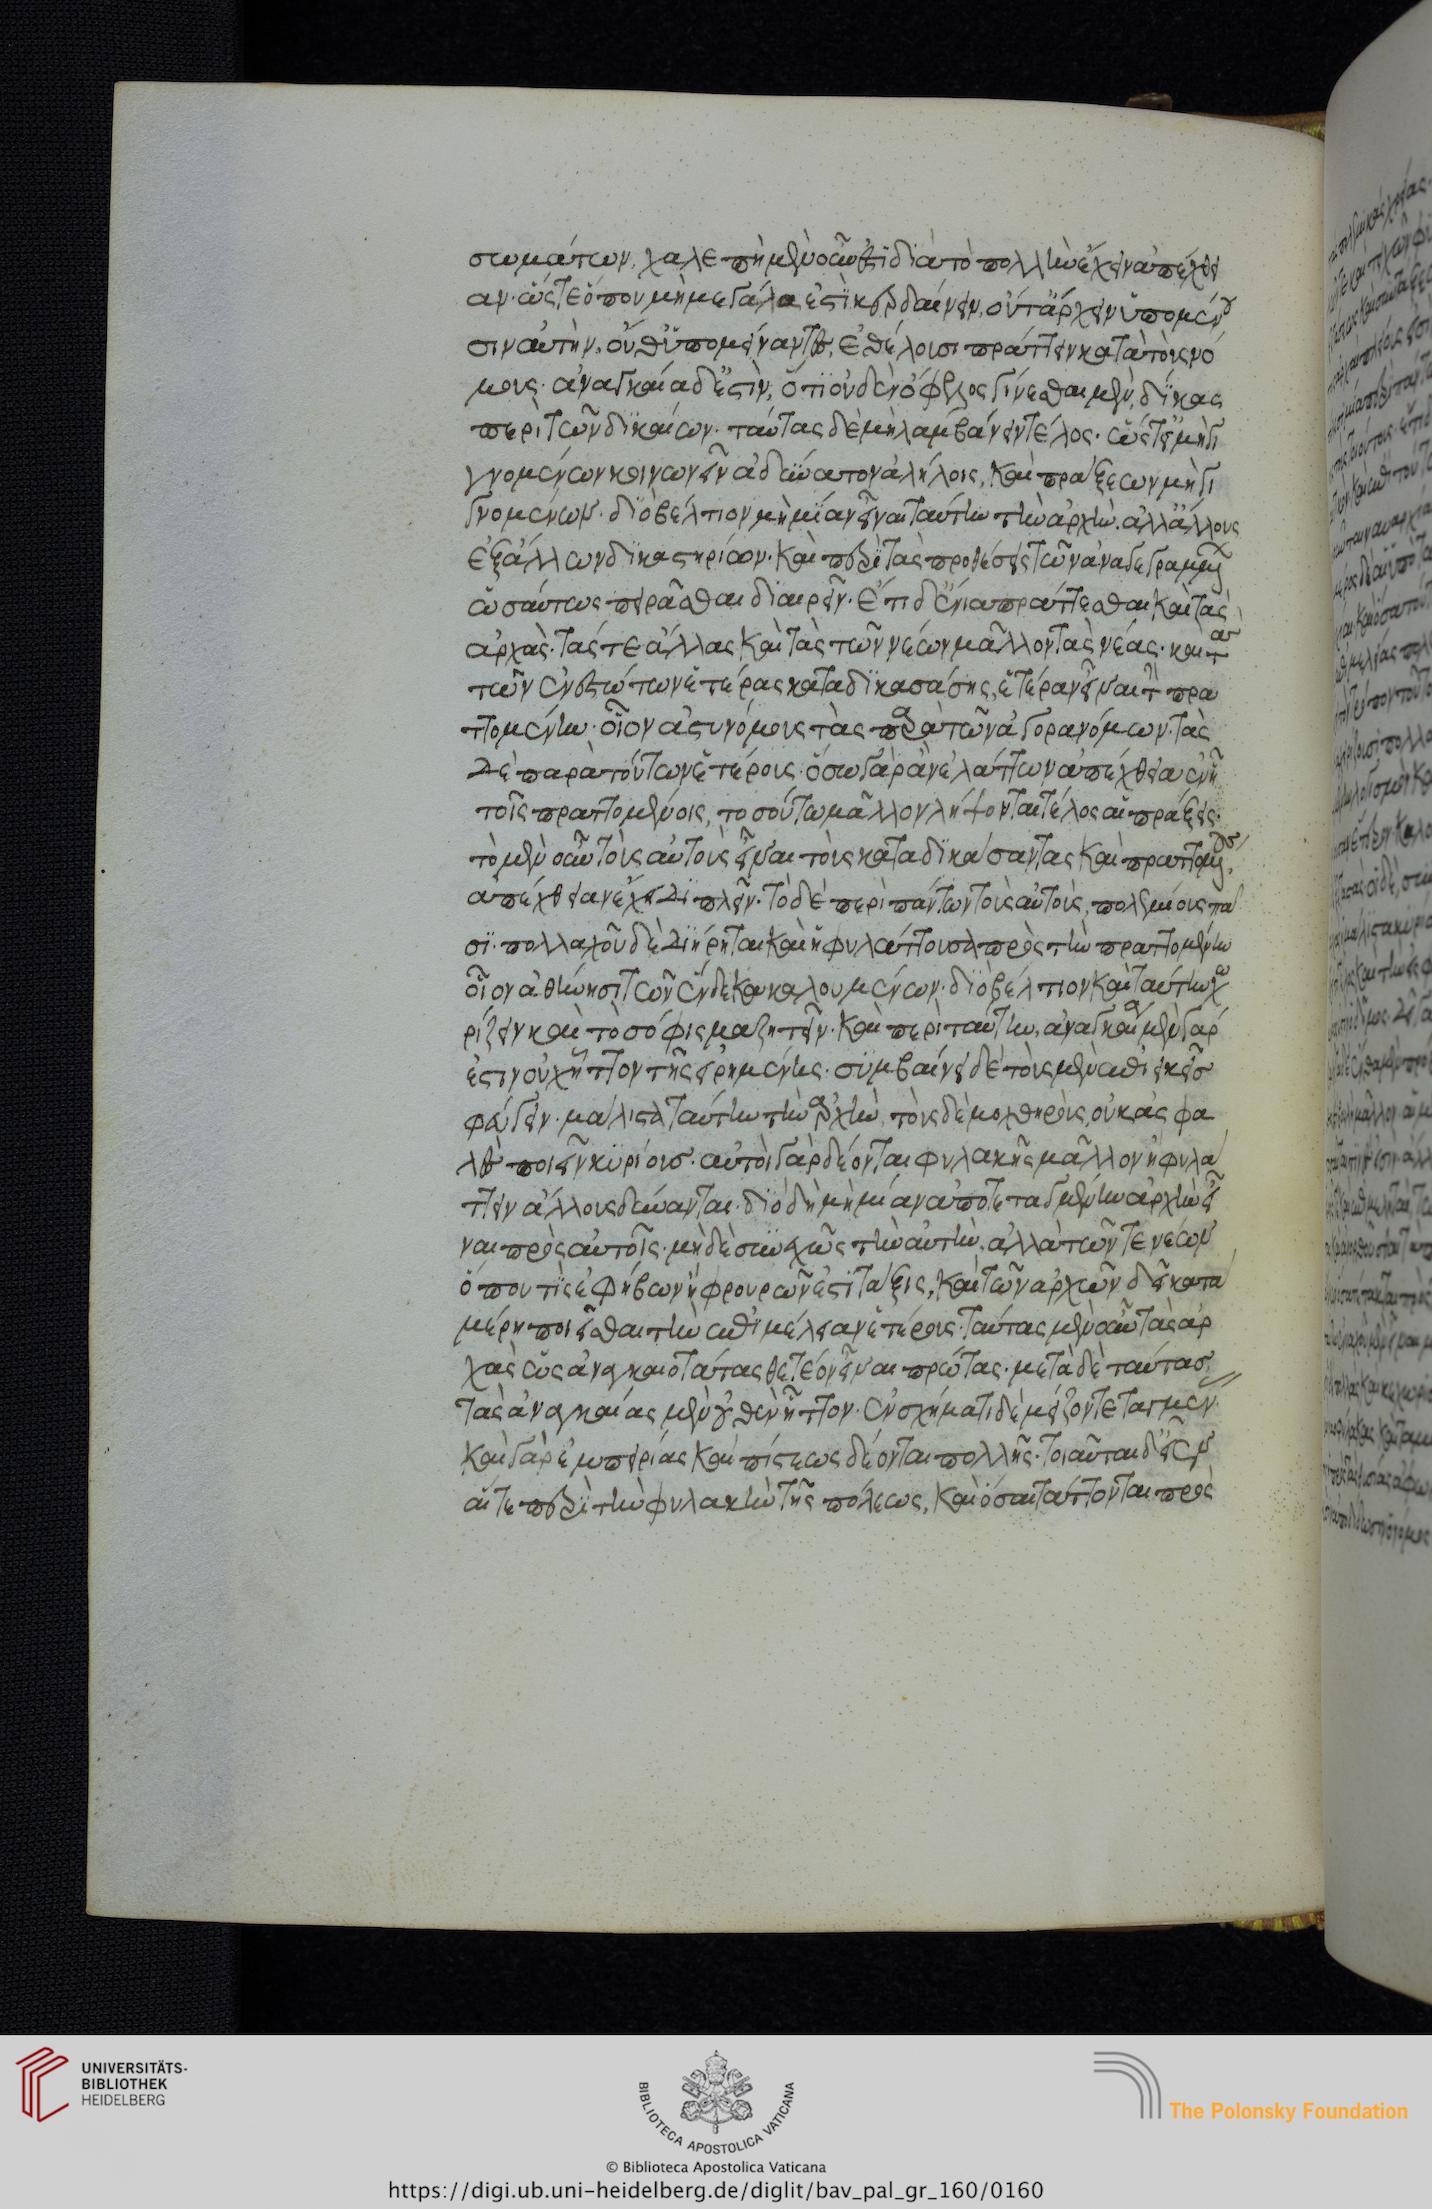 σωμάτων. χαλεπὴ μὲν οὖν ἐστὶ διὰ τὸ πολλὴν ἔχειν ἀπέχθει
αν. ὥστε ὅπου μὴ μεγάλα ἐστὶ κερδαίνειν, οὔτ' ἄρχειν ὑπομένου
σιν αὐτὴν, οὔθ' ὑπομείναντες, ἐθέλουσι πράττειν κατὰ τοὺς νό
μους. ἀναγκαία δ' ἐστὶν, ὅτι οὐδὲν ὄφελος γίνεσθαι μὲν, δίκας
περὶ τῶν δικαίων. ταύτας δὲ μὴ λαμβάνειν τέλος. ὥστ' εἰ μὴ γι
γνομένων κοινωνεῖν ἀδύνατον ἀλήλοις, καὶ πράξεων μὴ γι
γνομένων. διὸ βέλτιον μὴ μίαν εἶναι ταύτην τὴν ἀρχὴν. ἀλλ' ἄλλους
ἐξ ἄλλων δικαστηρίων. καὶ περὶ τὰς προθέσεις τῶν ἀναγεγραμμένων
ὡσαύτως πειρᾶσθαι διαιρεῖν. ἔτι δ' ἔνια πράττεσθαι καὶ τὰς
ἀρχὰς. τάς τε ἄλλας καὶ τὰς τῶν νέων μᾶλλον τὰς νέας. καὶ τὰς
τῶν ἐνεστώτων ἑτέρας καταδικασάσης, ἑτέραν εἶναι τὴν πρα
ττομένην. οἷον ἀστυνόμους τὰς παρὰ τῶν ἀγορανόμων. τὰς
δὲ παρὰ τούτων ἑτέροις. ὅσω γὰρ ἂν ἐλάττων ἀπέχθεια ἐνῇ
τοῖς πραττομένοις, τοσούτω μᾶλλον λήψονται τέλος αἱ πράξεις.
τὸ μὲν οὖν τοὺς αὐτοὺς εἶναι τοὺς καταδικάσαντας καὶ πραττομένους,
ἀπέχθειαν ἔχει διπλῆν. τὸ δὲ περὶ πάντων τοὺς αὐτοὺς, πολεμίους πα
σι. πολλαχοῦ δὲ διῄρηται καὶ ἡ φυλάττουσα πρὸς τὴν πραττομένην
οἷον ἀθήνησι τῶν ἕνδεκα καλουμένων. διὸ βέλτιον καὶ ταύτην χω
ρίζειν καὶ τὸ σόφισμα ζητεῖν. καὶ περὶ ταύτην. ἀναγκαία μὲν γάρ
ἐστιν οὐχ ἧττον τῆς εἰρημένης. συμβαίνει δὲ τοὺς μὲν ἐπιεικεῖσ
φεύγειν. μάλιστα ταύτην τὴν ἀρχὴν, τοὺς δὲ μοχθηροὺς, οὐκ ἀσφα
λὲς ποιεῖν κυρίουσ. αὐτοὶ γὰρ δέονται φυλακῆς μᾶλλον ἢ φυλά
ττειν ἄλλους δύνανται. διὸ δὴ μὴ μίαν ἀποτεταγμένην ἀρχὴν εἶ
ναι πρὸς αὐτοῖς. μηδὲ συνεχῶς τὴν αὐτὴν. ἀλλὰ τῶν τε νέων
ὅπου τις ἐφήβων ἢ φρουρῶν ἐστὶ τάξις, καὶ τῶν ἀρχῶν δεῖ κατα
μέρη ποιεῖσθαι τὴν ἐπιμέλειαν ἑτέρους. ταύτας μὲν οὖν τὰς ἀρ
χὰς ὡς ἀναγκαιοτάτας θετέον εἶναι πρώτας. μετὰ δὲ ταύτασ
τὰς ἀναγκαίας μὲν οὐθὲν ἧττον. ἐν σχήματι δὲ μείζον τεταγμέν.
καὶ γὰρ ἐμπειρίας καὶ πίστεως δέονται πολλῆς. τοιαῦται δ' εἶεν
αἵ τε περὶ τὴν φυλακὴν τῆς πόλεως, καὶ ὅσαι τάττονται πρὸς
UNIVERSITÄTS-
BIBLIOTHEK
HEIDELBERG
BIBLIOTECA APOSTOLICA VATICANA
The Polonsky Foundation
© Biblioteca Apostolica Vaticana
https://digi.ub.uni-heidelberg.de/diglit/bav_pal_gr_160/0160